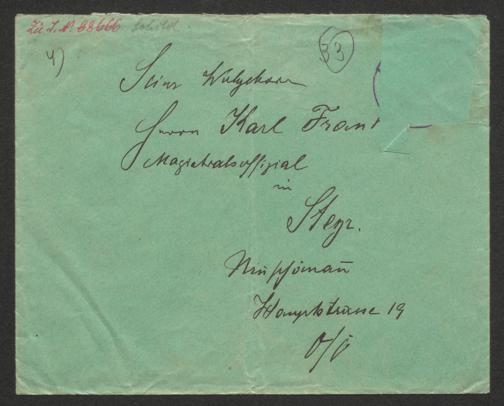 Zu J. № 38666
4)
33
Seiner Wohlgeboren
Herrn Karl Franz
Magistratsoffizial
in
Steyr.
Neuschönau
Hauptstrasse 19
O/Ö